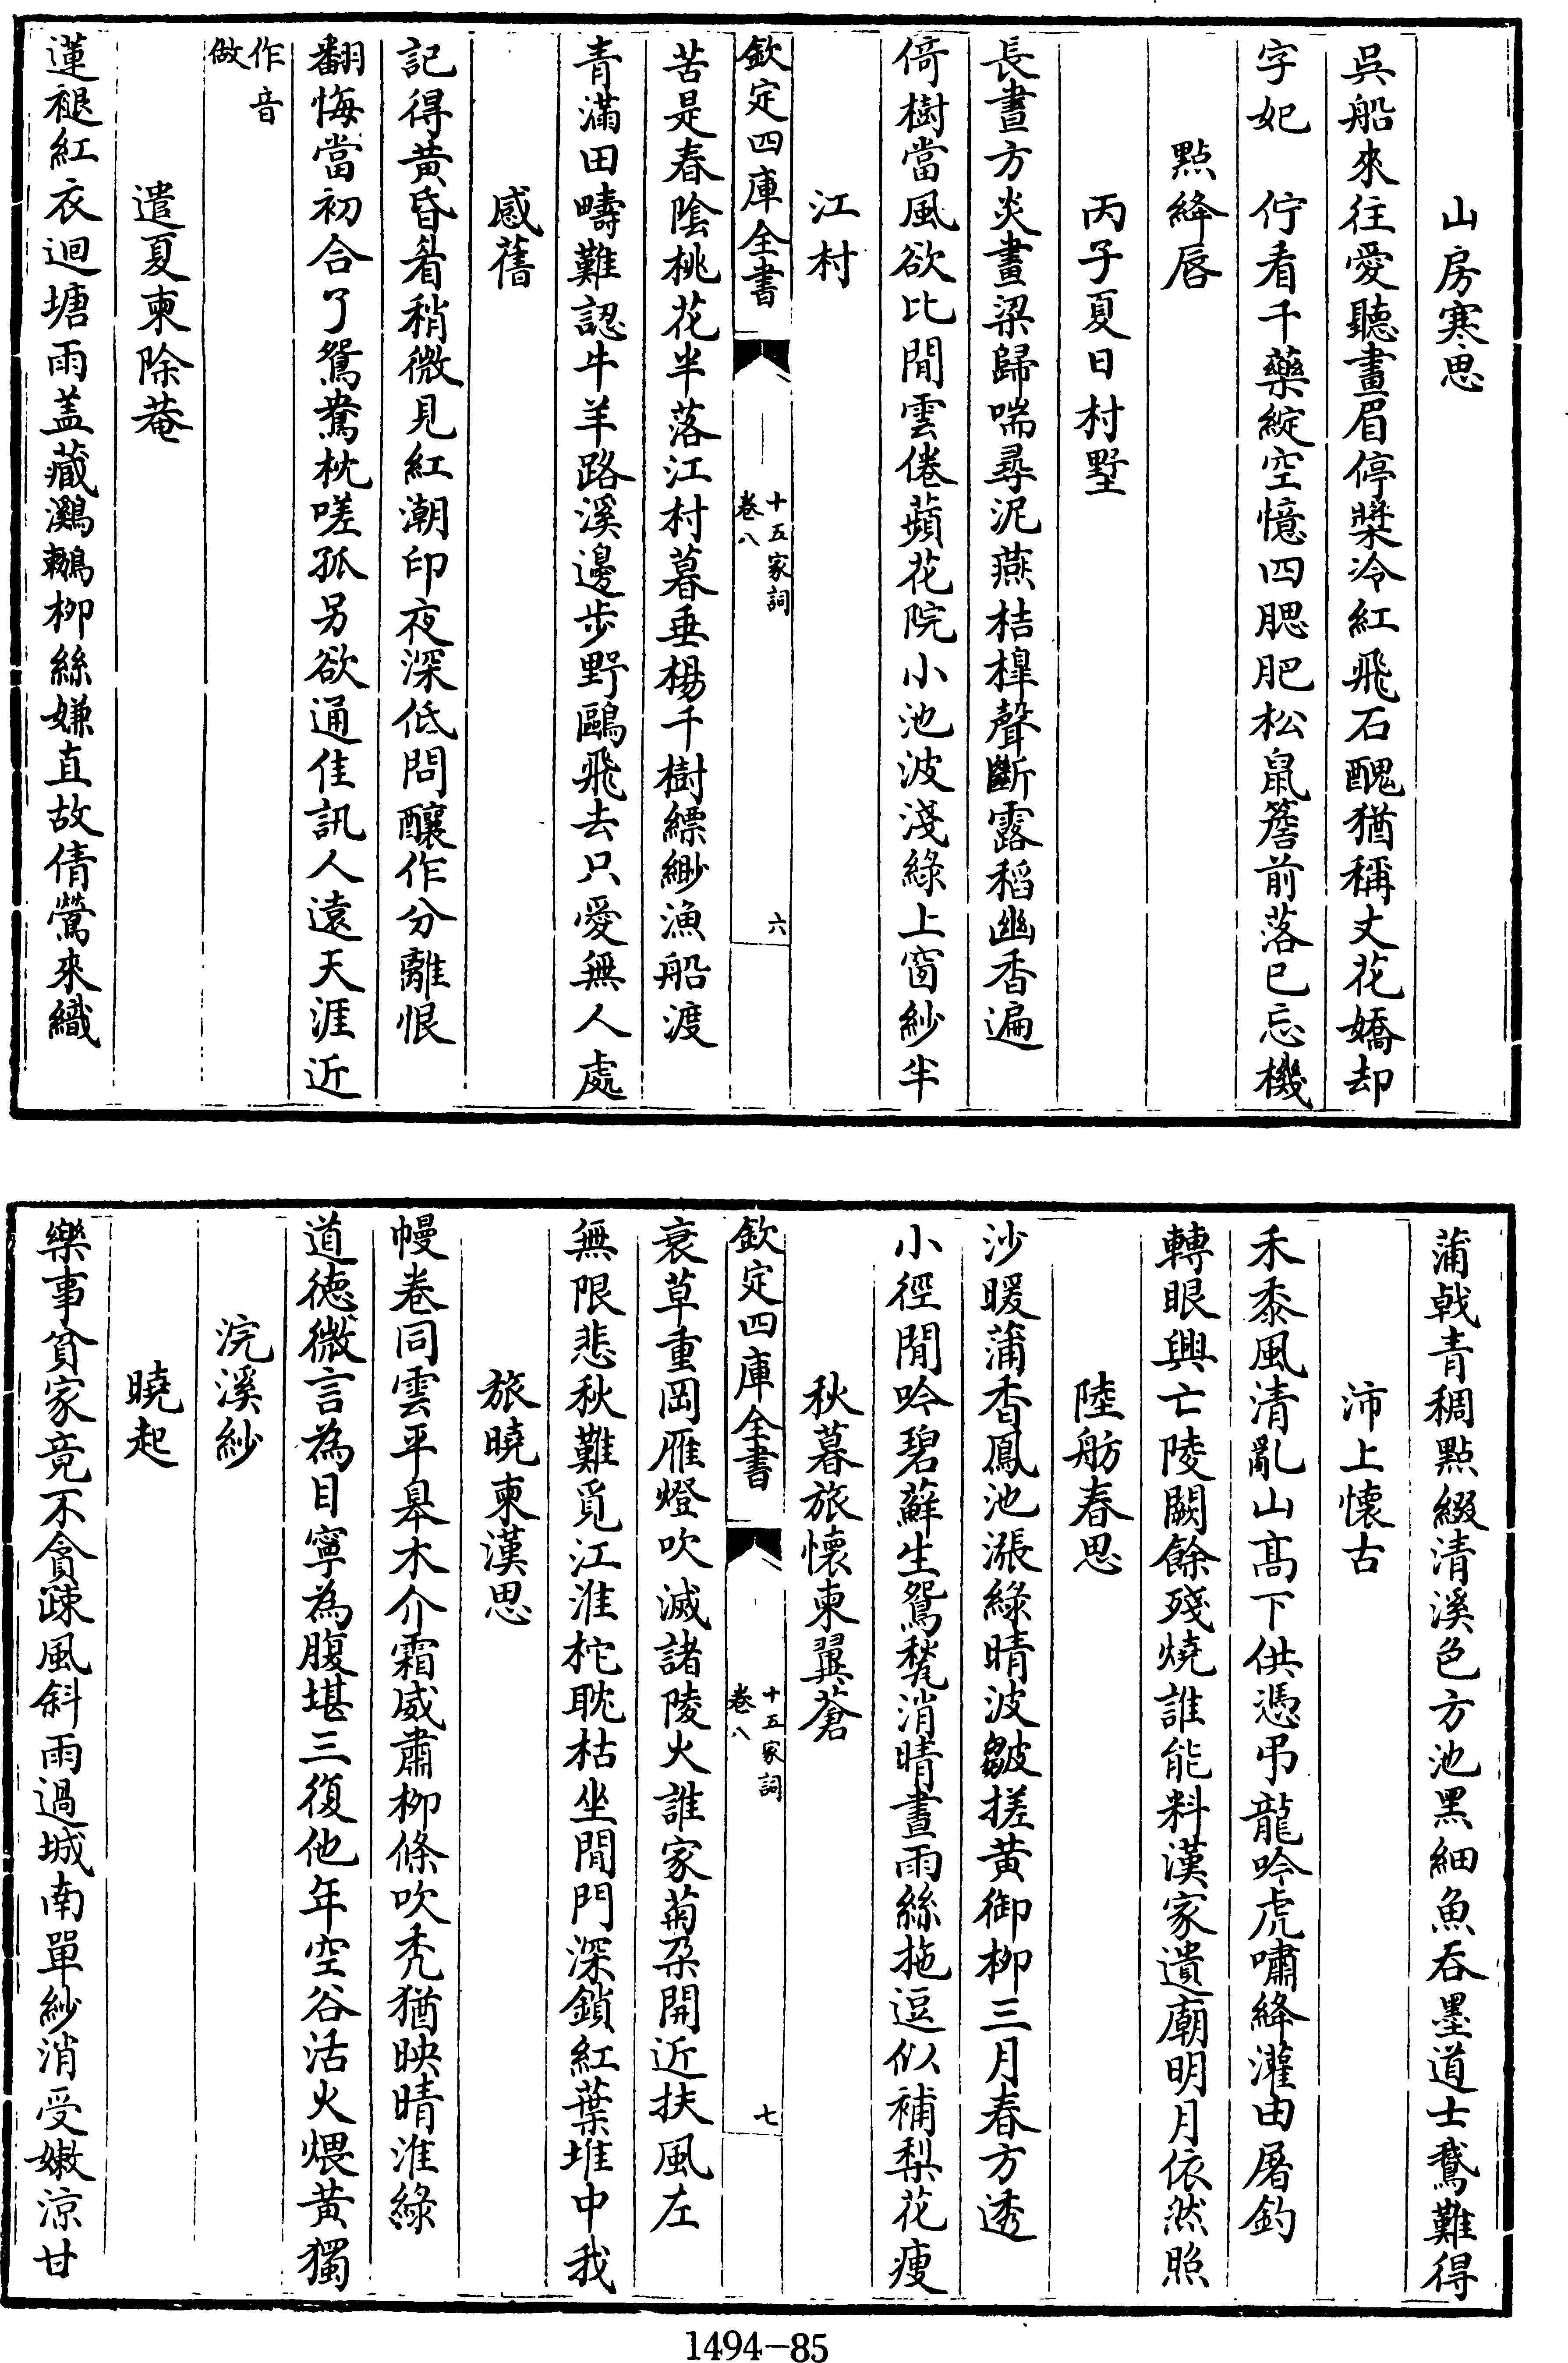 山房寒思
吳船來往愛聽畫眉停槳泠紅飛石醜猶稱丈花嬌却
字妃　佇看千藥綻空憶四腮肥松鼠簷前落已忘機
點絳唇
丙子夏日村墅
長晝方炎畫梁歸喘尋泥燕桔橰聲斷露稻幽香遍
倚樹當風欲比閒雲倦蘋花院小池波淺綠上窗紗半
江村
欽定四庫全書
十五家詞
卷八
六
苦是春陰桃花半落江村暮垂楊千樹縹緲漁船渡
青滿田疇難認牛羊路溪邊步野鷗飛去只愛無人處
感舊
記得黃昏看稍微見紅潮印夜深低問釀作分離恨
翻悔當初合了鴛鴦枕嗟孤另欲通佳訊人遠天涯近
作音
做
遣夏柬除菴
蓮褪紅衣迴塘雨盖藏鸂鶒柳絲嫌直故倩鶯來織
蒲戟青稠點綴清溪色方池黑細魚吞墨道士鵞難得
沛上懷古
禾黍風清亂山高下供憑弔龍吟虎嘯絳灌由屠釣
轉眼興亡陵闕餘殘燒誰能料漢家遺廟明月依然照
陸舫春思
沙暖蒲香鳳池漲綠晴波皺搓黃御柳三月春方透
小徑閒吟碧蘚生鴛甃消晴晝雨絲拖逗似補梨花瘦
秋暮旅懷柬翼蒼
欽定四庫全書
十五家詞
卷八
七
衰草重岡雁燈吹滅諸陵火誰家菊朶開近扶風左
無限悲秋難覓江淮柁耽枯坐閒門深鎖紅葉堆中我
旅曉柬漢思
幔卷同雲平皋木介霜威肅柳條吹禿猶映晴淮綠
道徳微言為目寧為腹堪三復他年空谷活火煨黃獨
浣溪紗
曉起
樂事貧家竟不貪疎風斜雨過城南單紗消受嫩涼甘
1494-85